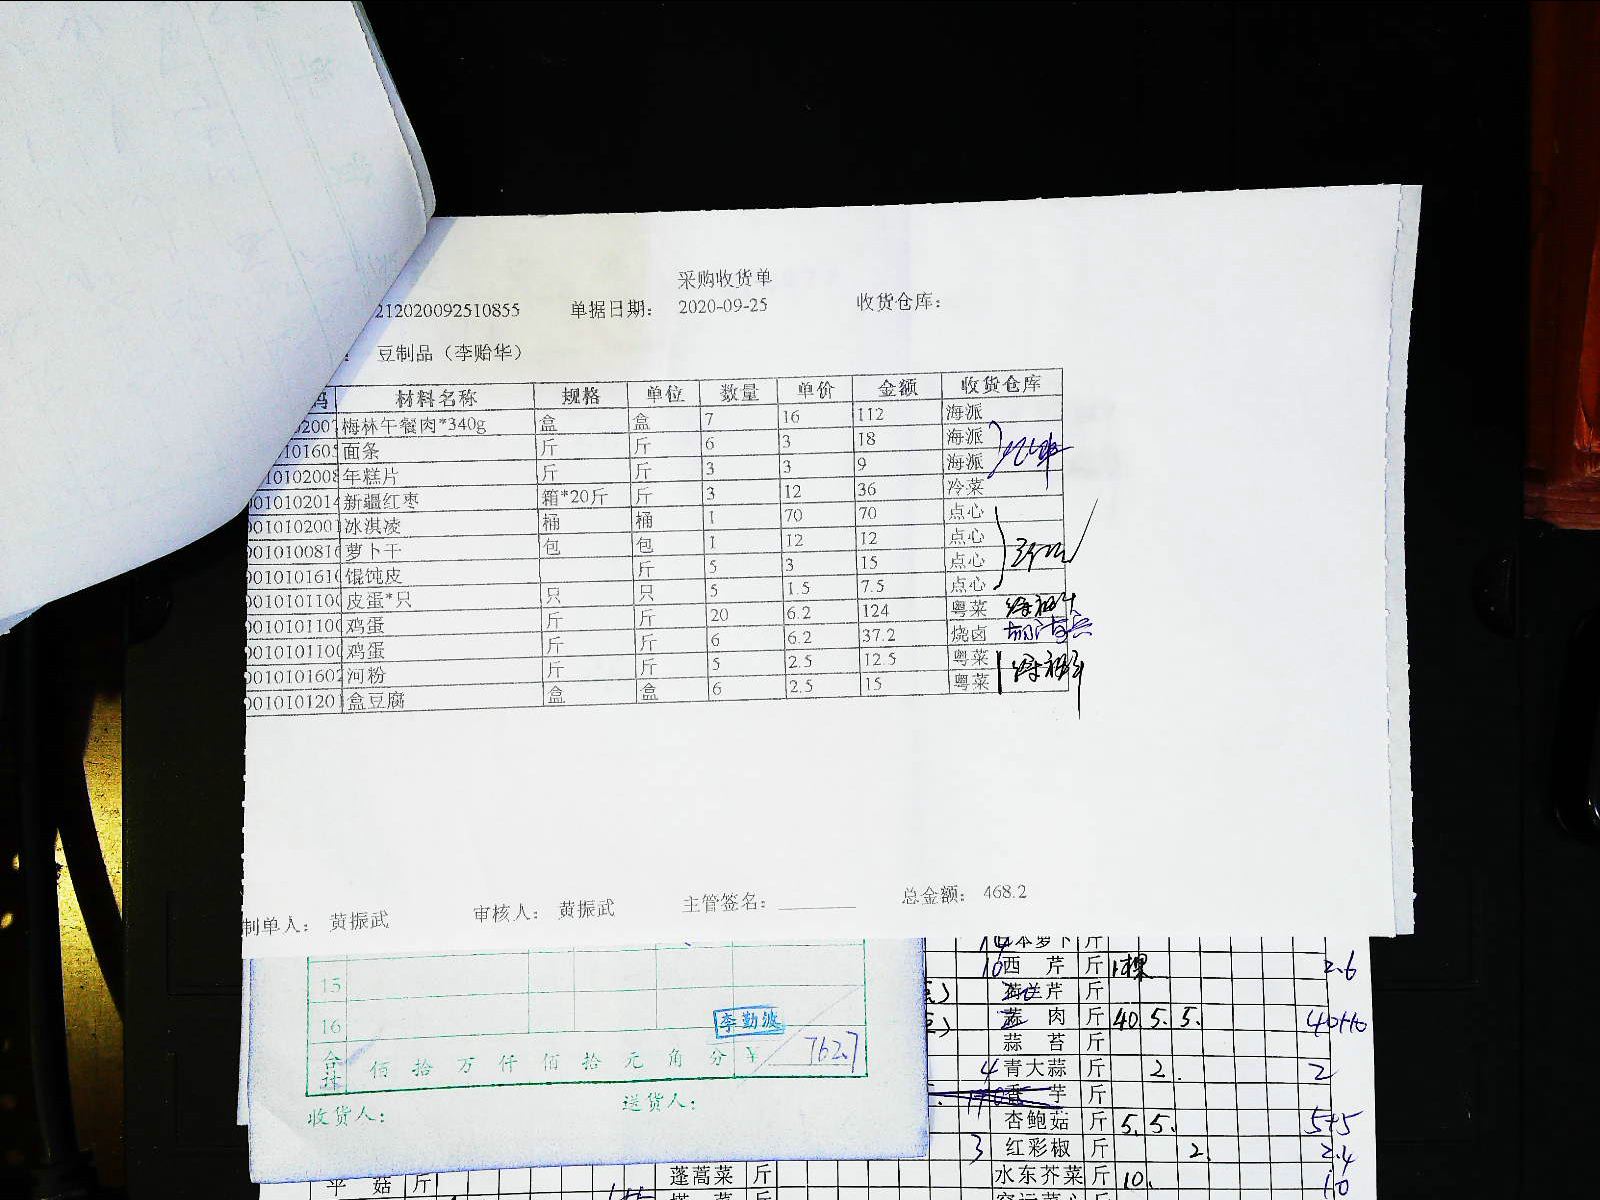 采购收货单
212020092510855 单据日期： 2020-09-25 收货仓库：
： 豆制品（李贻华）
码 材料名称 规格 单位 数量 单价 金额 收货仓库
02007 梅林午餐肉*340g 盒 盒 7 16 112 海派
101605 面条 斤 斤 6 3 18 海派
0102008 年糕片 斤 斤 3 3 9 海派
0010102014 新疆红枣 箱*20斤 斤 3 12 36 冷菜
0010102001 冰淇凌 桶 桶 1 70 70 点心
0010100816 萝卜干 包 包 1 12 12 点心
0010101610 馄饨皮 斤 5 3 15 点心
0010101100 皮蛋*只 只 只 5 1.5 7.5 点心
0010101100 鸡蛋 斤 斤 20 6.2 124 粤菜
0010101100 鸡蛋 斤 斤 6 6.2 37.2 烧卤
0010101602 河粉 斤 斤 5 2.5 12.5 粤菜
0010101201 盒豆腐 盒 盒 6 2.5 15 粤菜
制单人： 黄振武 审核人： 黄振武 主管签名： 总金额： 468.2
15
16
李勤波
合计 佰 拾 万 仟 佰 拾 元 角 分 ¥ 762.7
收货人： 送货人：
本萝卜 斤
10 西芹 斤 1棵 2.6
荷兰芹 斤
蒜肉 斤 40 5. 5. 40+10
蒜苔 斤
4 青大蒜 斤 2. 2
香芋 斤
杏鲍菇 斤 5. 5. 5+5
3 红彩椒 斤 2. 2.4
水东芥菜 斤 10. 10
平菇 斤
蓬蒿菜 斤